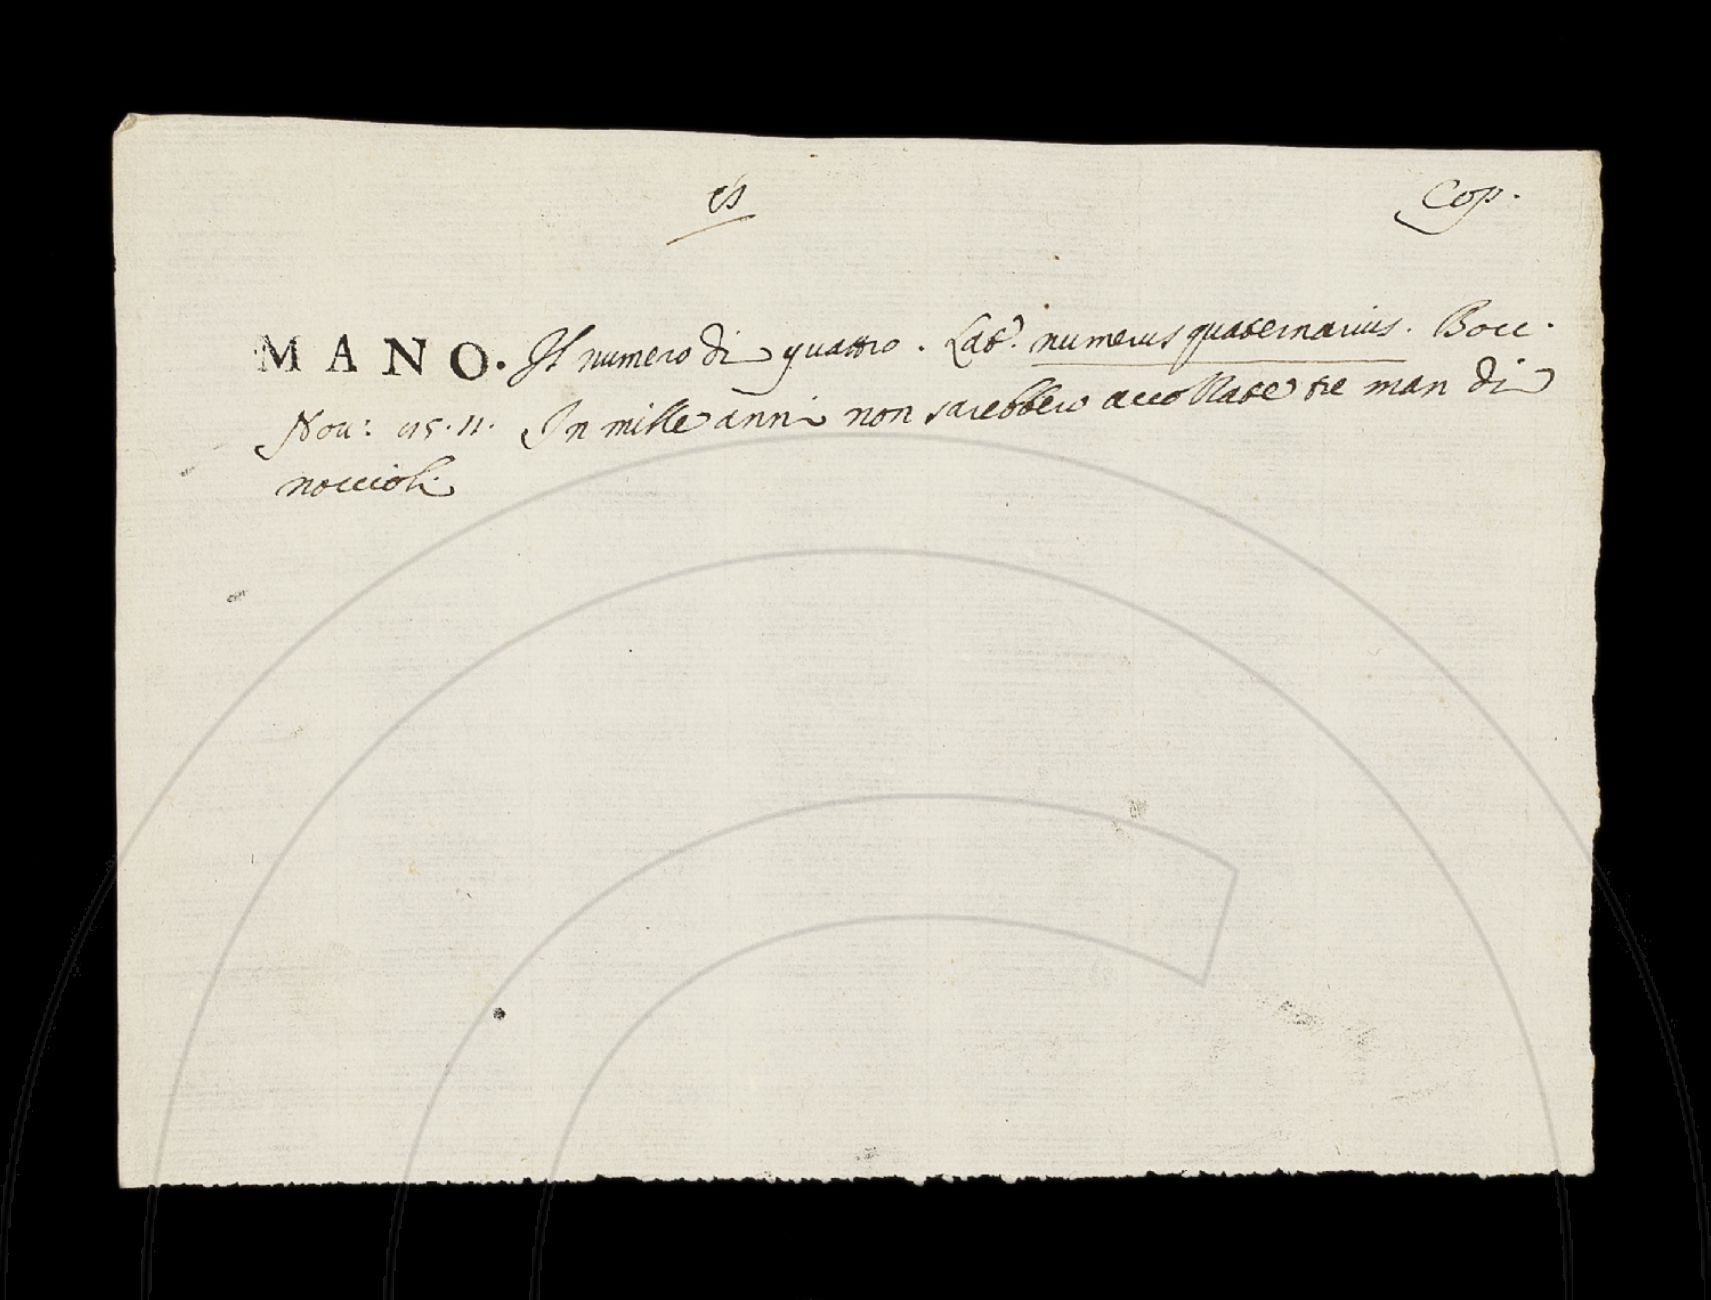 es Cop.
MANO. Il numero di quattro. Lat. numerus quaternarius. Bocc.
Nov: 75.11. In mille anni non sarebbero accollate tre man di
noccioli